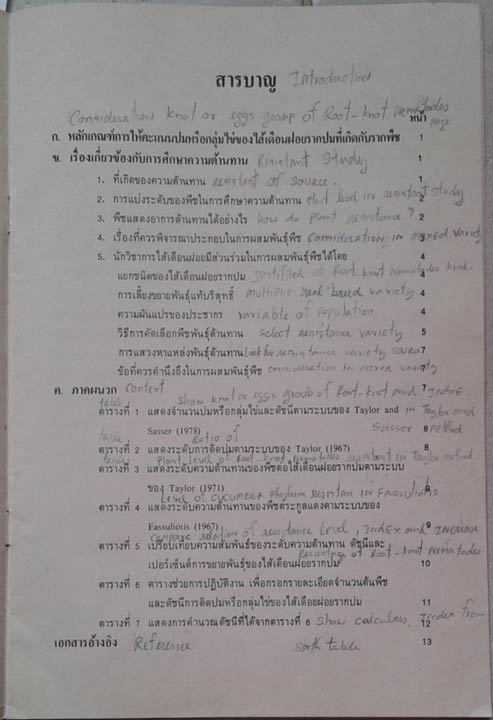 สารบาญ Introduction
Consideration knot or eggs group of Root-knot nematodes
หน้า page
ก. หลักเกณฑ์การให้คะแนนปมหรือกลุ่มไข่ของไส้เดือนฝอยรากปมที่เกิดกับรากพืช 1
ข. เรื่องเกี่ยวข้องกับการศึกษาความต้านทาน Resistant Study 1
1. ที่เกิดของความต้านทาน resistant of source. 1
2. การแบ่งระดับของพืชในการศึกษาความต้านทาน plant level in resistant study 2
3. พืชแสดงอาการต้านทานได้อย่างไร how do plant resistance? 2
4. เรื่องที่ควรพิจารณาประกอบในการผสมพันธุ์พืช Consideration in mixed variety
5. นักวิชาการไส้เดือนฝอยมีส่วนร่วมในการผสมพันธุ์พืชได้โดย 4
แยกชนิดของไส้เดือนฝอยรากปม justified of Root-knot nematodes kind.
การเลี้ยงขยายพันธุ์แท้บริสุทธิ์ multiple real breed variety 4
ความผันแปรของประชากร variable of population 4
วิธีการคัดเลือกพืชพันธุ์ต้านทาน select resistance variety 5
การแสวงหาแหล่งพันธุ์ต้านทาน look for resistance variety source
ข้อที่ควรคำนึงถึงในการผสมพันธุ์พืช consideration in mixed variety
ค. ภาคผนวก Context 7
table Show knot or eggs group of Root-knot and INDEX
ตารางที่ 1 แสดงจำนวนปมหรือกลุ่มไข่และดัชนีตามระบบของ Taylor and in Taylor and
Sasser (1978) Sasser 8 method
table Ratio of
ตารางที่ 2 แสดงระดับการติดปมตามระบบของ Taylor (1967) 8
plant level of Root-knot nematodes resistant in Taylor method
ตารางที่ 3 แสดงระดับความต้านทานของพืชต่อไส้เดือนฝอยรากปมตามระบบ
ของ Taylor (1971) 9
Level of cucumber resistan in Fassuliotis
ตารางที่ 4 แสดงระดับความต้านทานของพืชตระกูลแตงตามระบบของ
Fassuliotis (1967) 9
compare relation of resistance level, INDEX and Increase
ตารางที่ 5 เปรียบเทียบความสัมพันธ์ของระดับความต้านทาน ดัชนีและ
percentage of Root-knot nematodes
เปอร์เซ็นต์การขยายพันธุ์ของไส้เดือนฝอยรากปม 10
ตารางที่ 6 ตารางช่วยการปฏิบัติงาน เพื่อกรอกรายละเอียดจำนวนต้นพืช
และดัชนีการติดปมหรือกลุ่มไข่ของไส้เดือยฝอยรากปม 11
ตารางที่ 7 แสดงการคำนวณดัชนีที่ได้จากตารางที่ 6 Show calculus, Index from 12
เอกสารอ้างอิง Reference sixth table 13